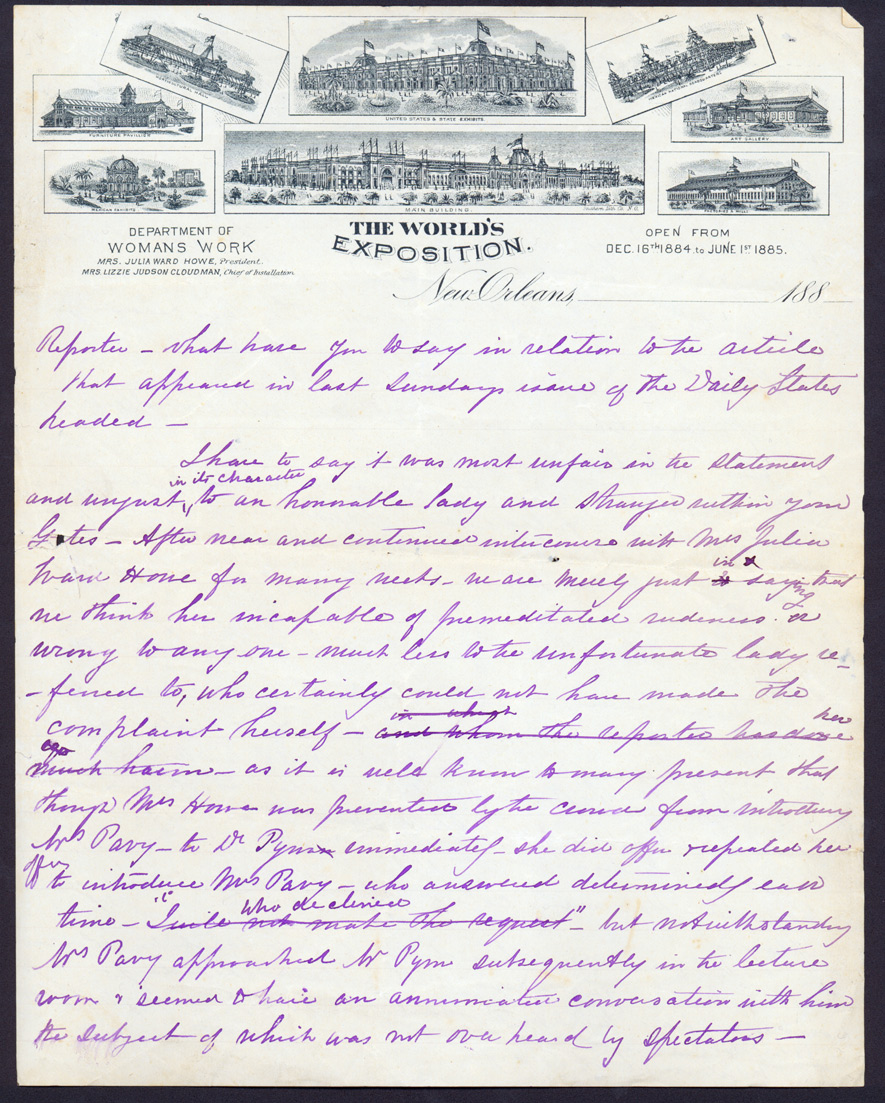 HORTICULTURAL HALL
UNITED STATES & STATE EXHIBITS.
FURNITURE PAVILLION
ART GALLERY
MEXICAN EXHIBITS
MAIN BUILDING.
DEPARTMENT OF
WOMANS WORK
MRS. JULIA WARD HOWE, President.
MRS. LIZZIE JUDSON CLOUDMAN, Chief of Installation.
THE WORLD'S
EXPOSITION.
OPEN FROM
DEC. 16TH 1884. to JUNE 1ST 1885.
New Orleans, 188
Reporter – what have you to say in relation to the article
that appeared in last Sundays issue of the Daily States
headed –
I have to say it was most unfair in the statement
in its character
and unjust, to an honorable lady and stranger within your
Gates – After near and continued intercourse with Mrs Julia
in
Ward Howe for many weeks – we are merely just saying that
we think her incapable of premeditated rudeness or
wrong to any one – much less to the unfortunate lady re-
-ferred to, who certainly could not have made the
in which
complaint herself – and whom the reporter has done
her
much harm – as it is well know to many present that
though Mrs Howe was prevented by the crowd from introducing
Mrs Pavy – to Dr Pym immediately – she did offer & repeated her
offer
to introduce Mrs Pavy – who answered determinedly each
who declined
time – "I will not make the request" – but notwithstanding
Mrs Pavy approached Mr Pym subsequently in the lecture
room & seemed to have an annimated conversation with him
the subject of which was not over heard by spectators –